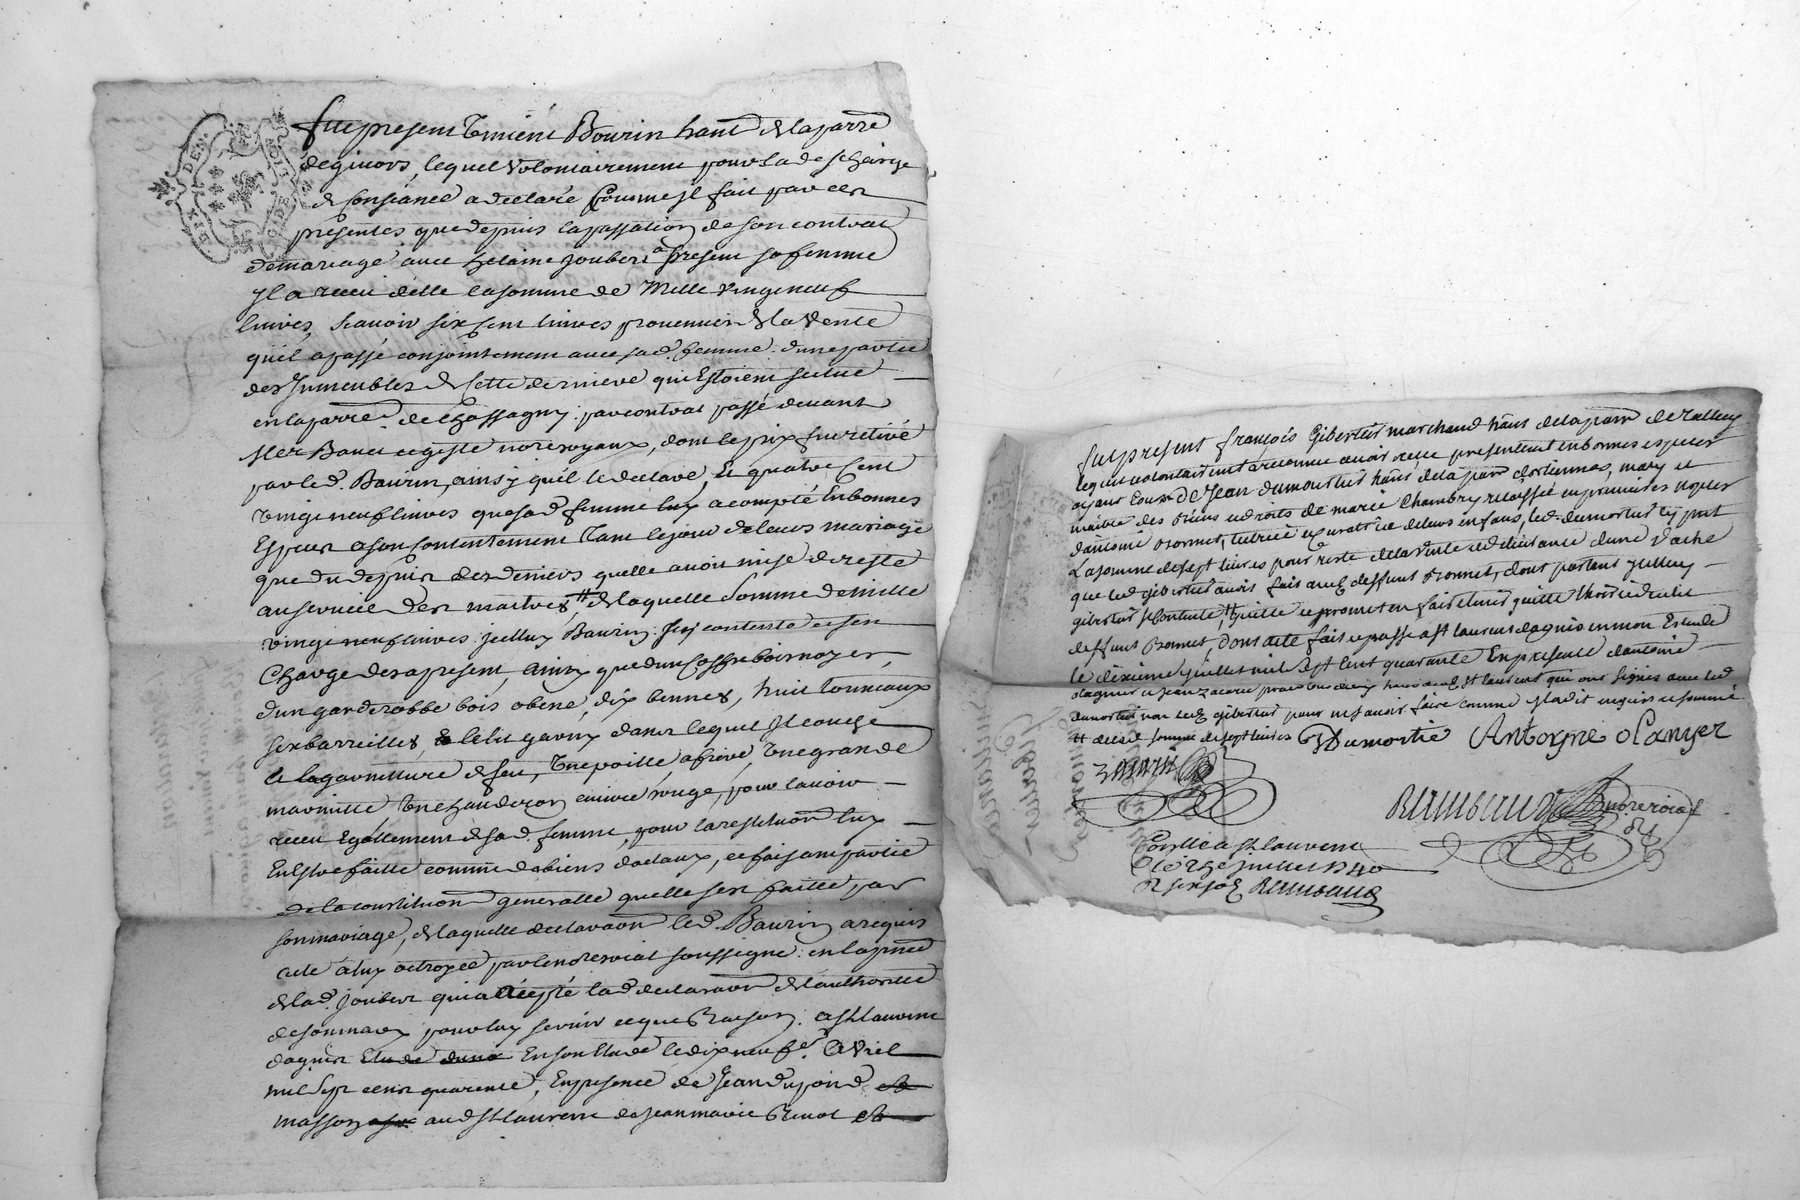 fut present Bourin hant de la parre
de givors, lequel volontairement pour la descharge
de consiance a declaré comme il fait par ces
presentes que depuis la passation de son contrat
de mariage avec helaine joubert a present sa femme
il a receu delle la somme de Mille vingt neuf
livres, scavoir six cent livres provenues de la vente
qu'il a passé conjointement avec sad. femme d'une partie
des immeubles de cette derniere qui estoient scitué
en la parre de Chassagny par contrat passé devant
notes royaux, dont le prix fut retiré
par led. Bourin, ainsy qu'il le declare, et quatre cent
vingt neuf livres que sad. femme luy a compté en bonnes
especes a son contentement tant le jour de leurs mariage
que du depuis des deniers quelle avoit mise de reste
au service des maitres, de laquelle somme de mille
vingt neuf livres icelluy Bourin se contente et sen
charge des a present, ainsy que d'un coffre bois noyer,
d'un garderobbe bois obene, dix bennes, huit tonneaux
six barreilles, le lit garny dans lequel il couche
la garniture de feu, une poille a frire, une grande
marmitte une chauderon cuivre rouge, pour lavoir
receu egallement de sad. femme pour la restitution luy
en estre faitte comme de biens dotaux, et faisant partie
de la constitution generalle quelle sest faitte par
son mariage, de laquelle declaraon led. Bourin a requis
acte a luy octroyée par le note royal soussigne en la pnce
de lad. joubert qui a accepté lad. declaraon de lauthorité
de son mary pour luy servir ce que de raison. a St laurent
dagnies en son Etude le dix neufe. Avril
mil sept cent quarente, En presence de Jean dupond
masson aud St laurent de Jean marie
fut present françois Gibertes marchand hant de la parre de
lequel volontairement a reconnu avoir receu presentement en bonnes especes
ayant cours de Jean dumortier hant de la parre dorlienas, mary et
maitre des biens et droits de marie Chambry relaissée en premieres nopces
dantoine bonnet, tutrice et curatrice de leurs enfans, led. dumortier
La somme de sept livres pour reste de la vente et delivrance dune vache
que led gibertes avoit fait aud deffunt bonnet, dont partant icelluy
gibertes se contente, quitte et promet en faire tenir quitte lhoirie dudit
deffunt bonnet, dont acte fait et passé a St laurent dagnies en mon Estude
le dixieme juillet mil sept cent quarante En presence dantoine
olagnier et Jean zacarie praticiens hants aud St laurent qui ont signés avec led
dumortier non led gibertes pour ne scavoir faire comme il a dit enquis et sommé
de lad somme de sept livres Dumortié Antoyne olanyer
zacarie
Rambaud no.re royal
Conllé a St laurent
le 12e juillet 1740
R six sols Rambaud